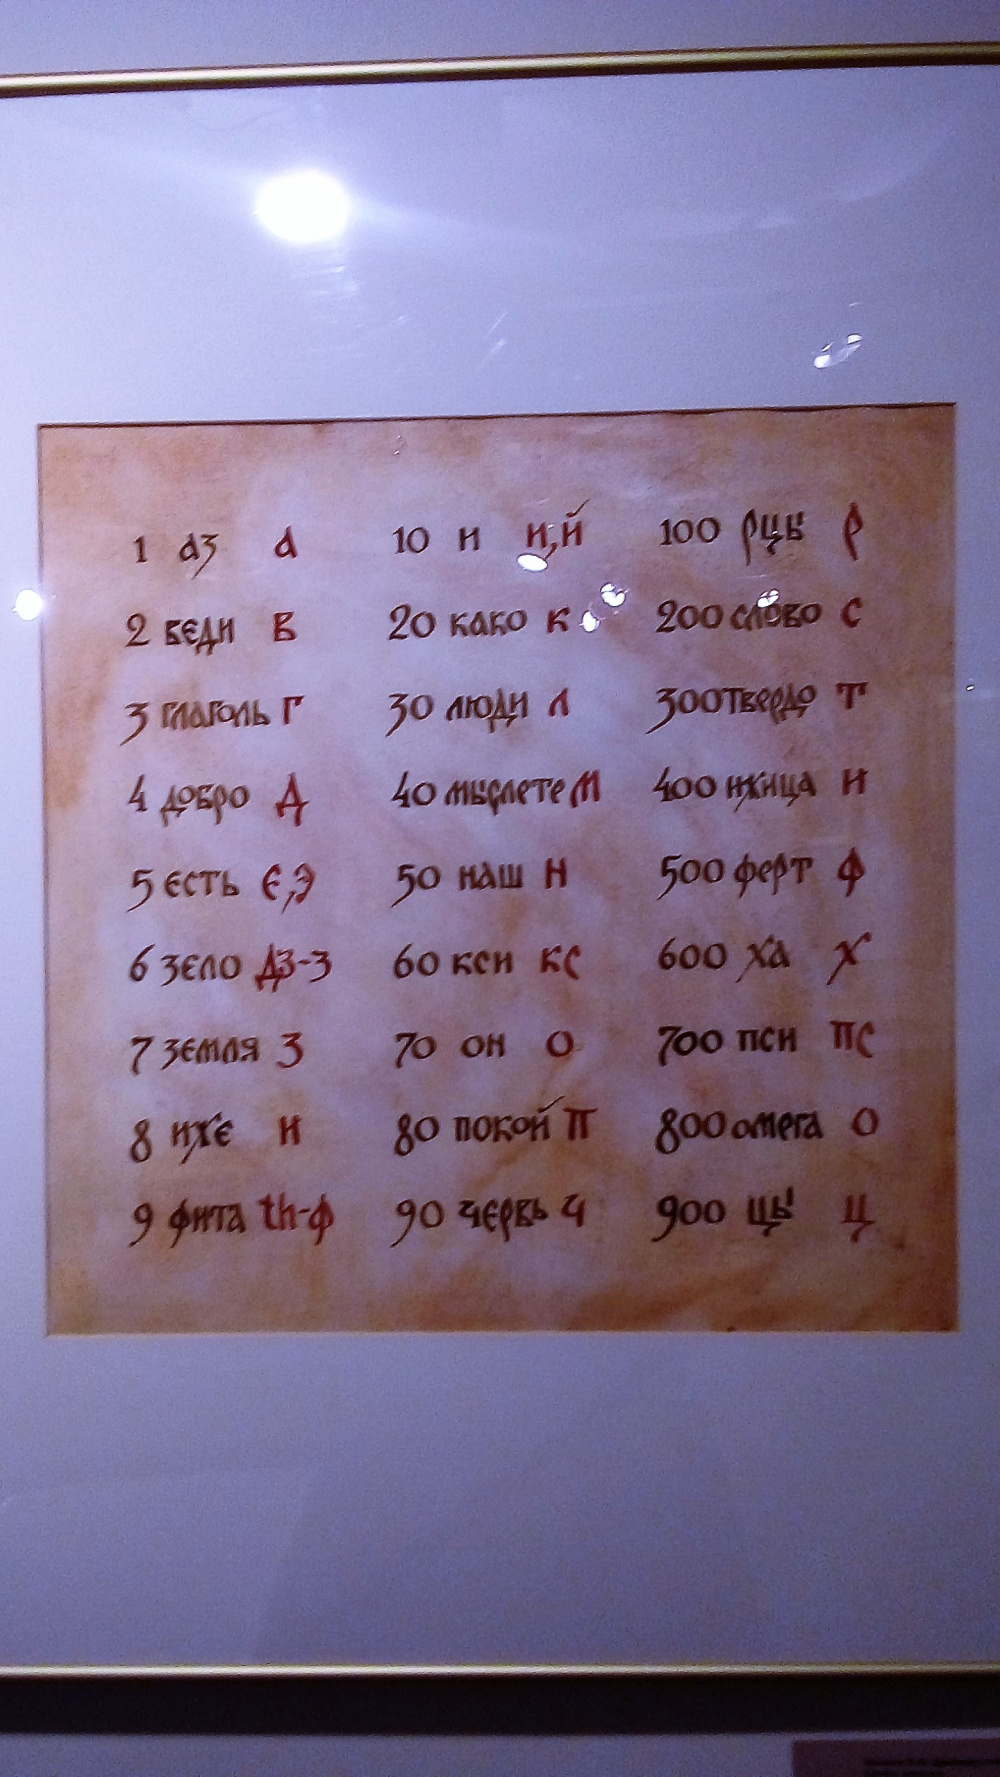 1 аз а 10 и и,й 100 рцы р
2 веди в 20 како к 200 слово с
3 глаголь г 30 люди л 300 твердо т
4 добро д 40 мыслете м 400 ижица и
5 єсть є,э 50 наш н 500 ферт ф
6 зєло дз-з 60 кси кс 600 ха х
7 зємля з 70 он о 700 пси пс
8 ижє и 80 покой п 800 омега о
9 фита th-ф 90 чєрвь ч 900 цы ц